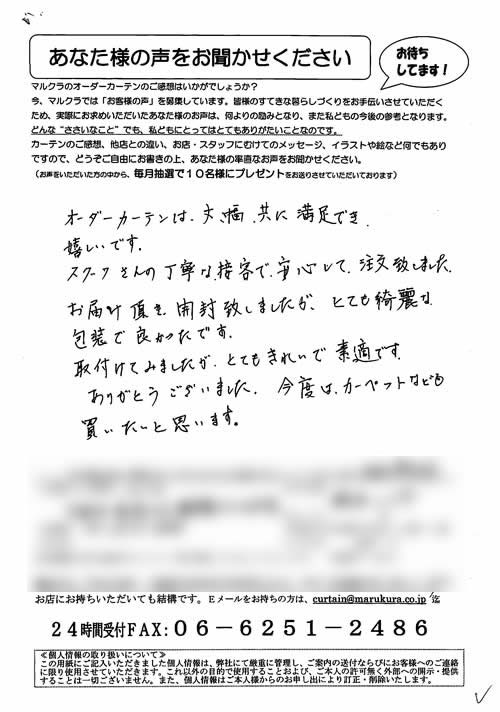 あなた様の声をお聞かせください
お待ち
してます!
マルクラのオーダーカーテンのご感想はいかがでしょうか?
今、マルクラでは「お客様の声」を募集しています。皆様のすてきな暮らしづくりをお手伝いさせていただく
ため、実際にお求めいただいたあなた様のお声は、何よりの励みとなり、また私どもの今後の参考となります。
どんな“ささいなこと”でも、私どもにとってはとてもありがたいことなのです。
カーテンのご感想、他店との違い、お店・スタッフにむけてのメッセージ、イラストや絵など何でもあり
ですので、どうぞご自由にお書きの上、あなた様の率直なお声をお聞かせください。
(お声をいただいた方の中から、毎月抽選で10名様にプレゼントをお送りさせていただいております)
オーダーカーテンは、丈、幅、共に満足でき、
嬉しいです。
スタッフさんの丁寧な接客で、安心して、注文致しました。
お届け頂き、開封致しましたが、とても綺麗な
包装で良かったです。
取付けてみましたが、とてもきれいで素適です。
ありがとうございました。今度は、カーペットなども
買いたいと思います。
お店にお持ちいただいても結構です。Eメールをお持ちの方は、curtain@marukura.co.jp迄
24時間受付FAX:06-6251-2486
≪個人情報の取り扱いについて≫
この用紙にご記入いただきました個人情報は、弊社にて厳重に管理し、ご案内の送付ならびにお客様へのご連絡
に限り使用させていただきます。これ以外の目的で使用することおよび、ご本人の許可無く外部への開示・提供
することは一切ございません。また、個人情報はご本人様からのお申し出により訂正・削除いたします。